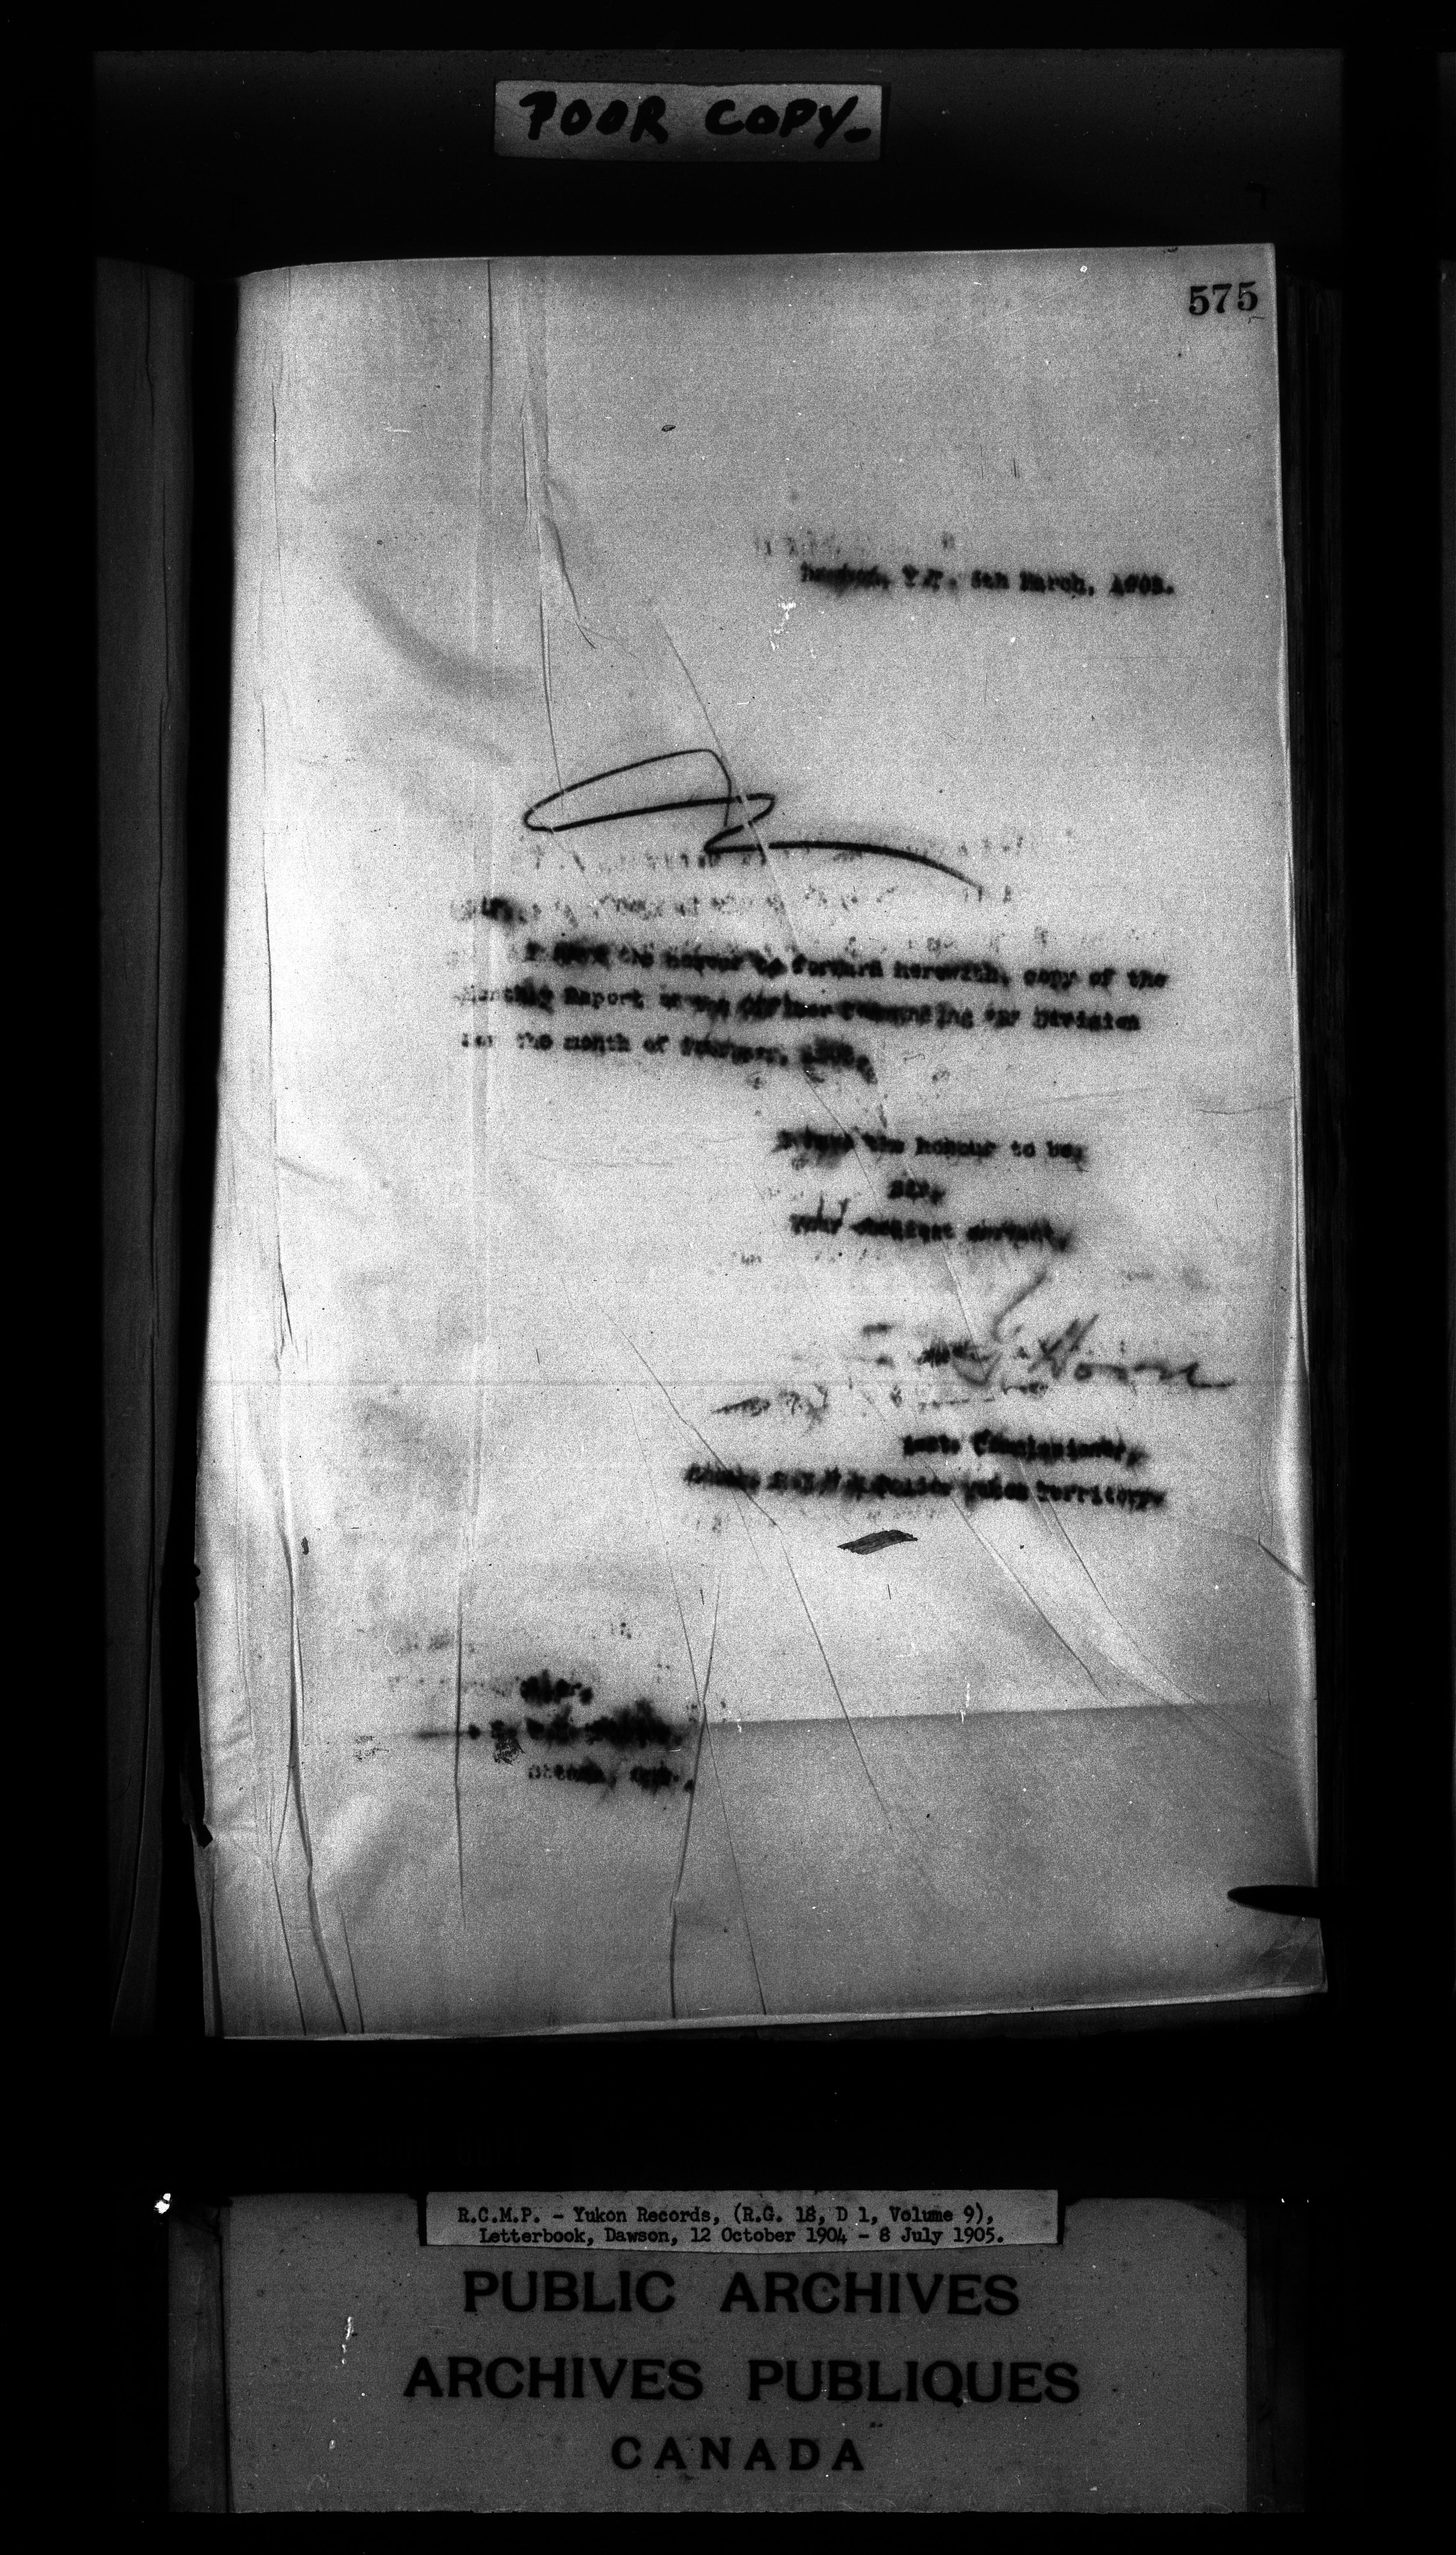 POOR COPY.
575
Dawson, Y.T. March, 1905.
Sir,
I have the honour to forward herewith, copy of the
Monthly Report Officer Commanding Division
for the month of February, 1905.
I have the honour to be,
Sir,
Your obedient servant,
Asst. Commissioner,
Police Yukon Territory.
Ottawa, Ont.
R.C.M.P. - Yukon Records, (R.G. 18, D 1, Volume 9),
Letterbook, Dawson, 12 October 1904 - 8 July 1905.
PUBLIC ARCHIVES
ARCHIVES PUBLIQUES
CANADA